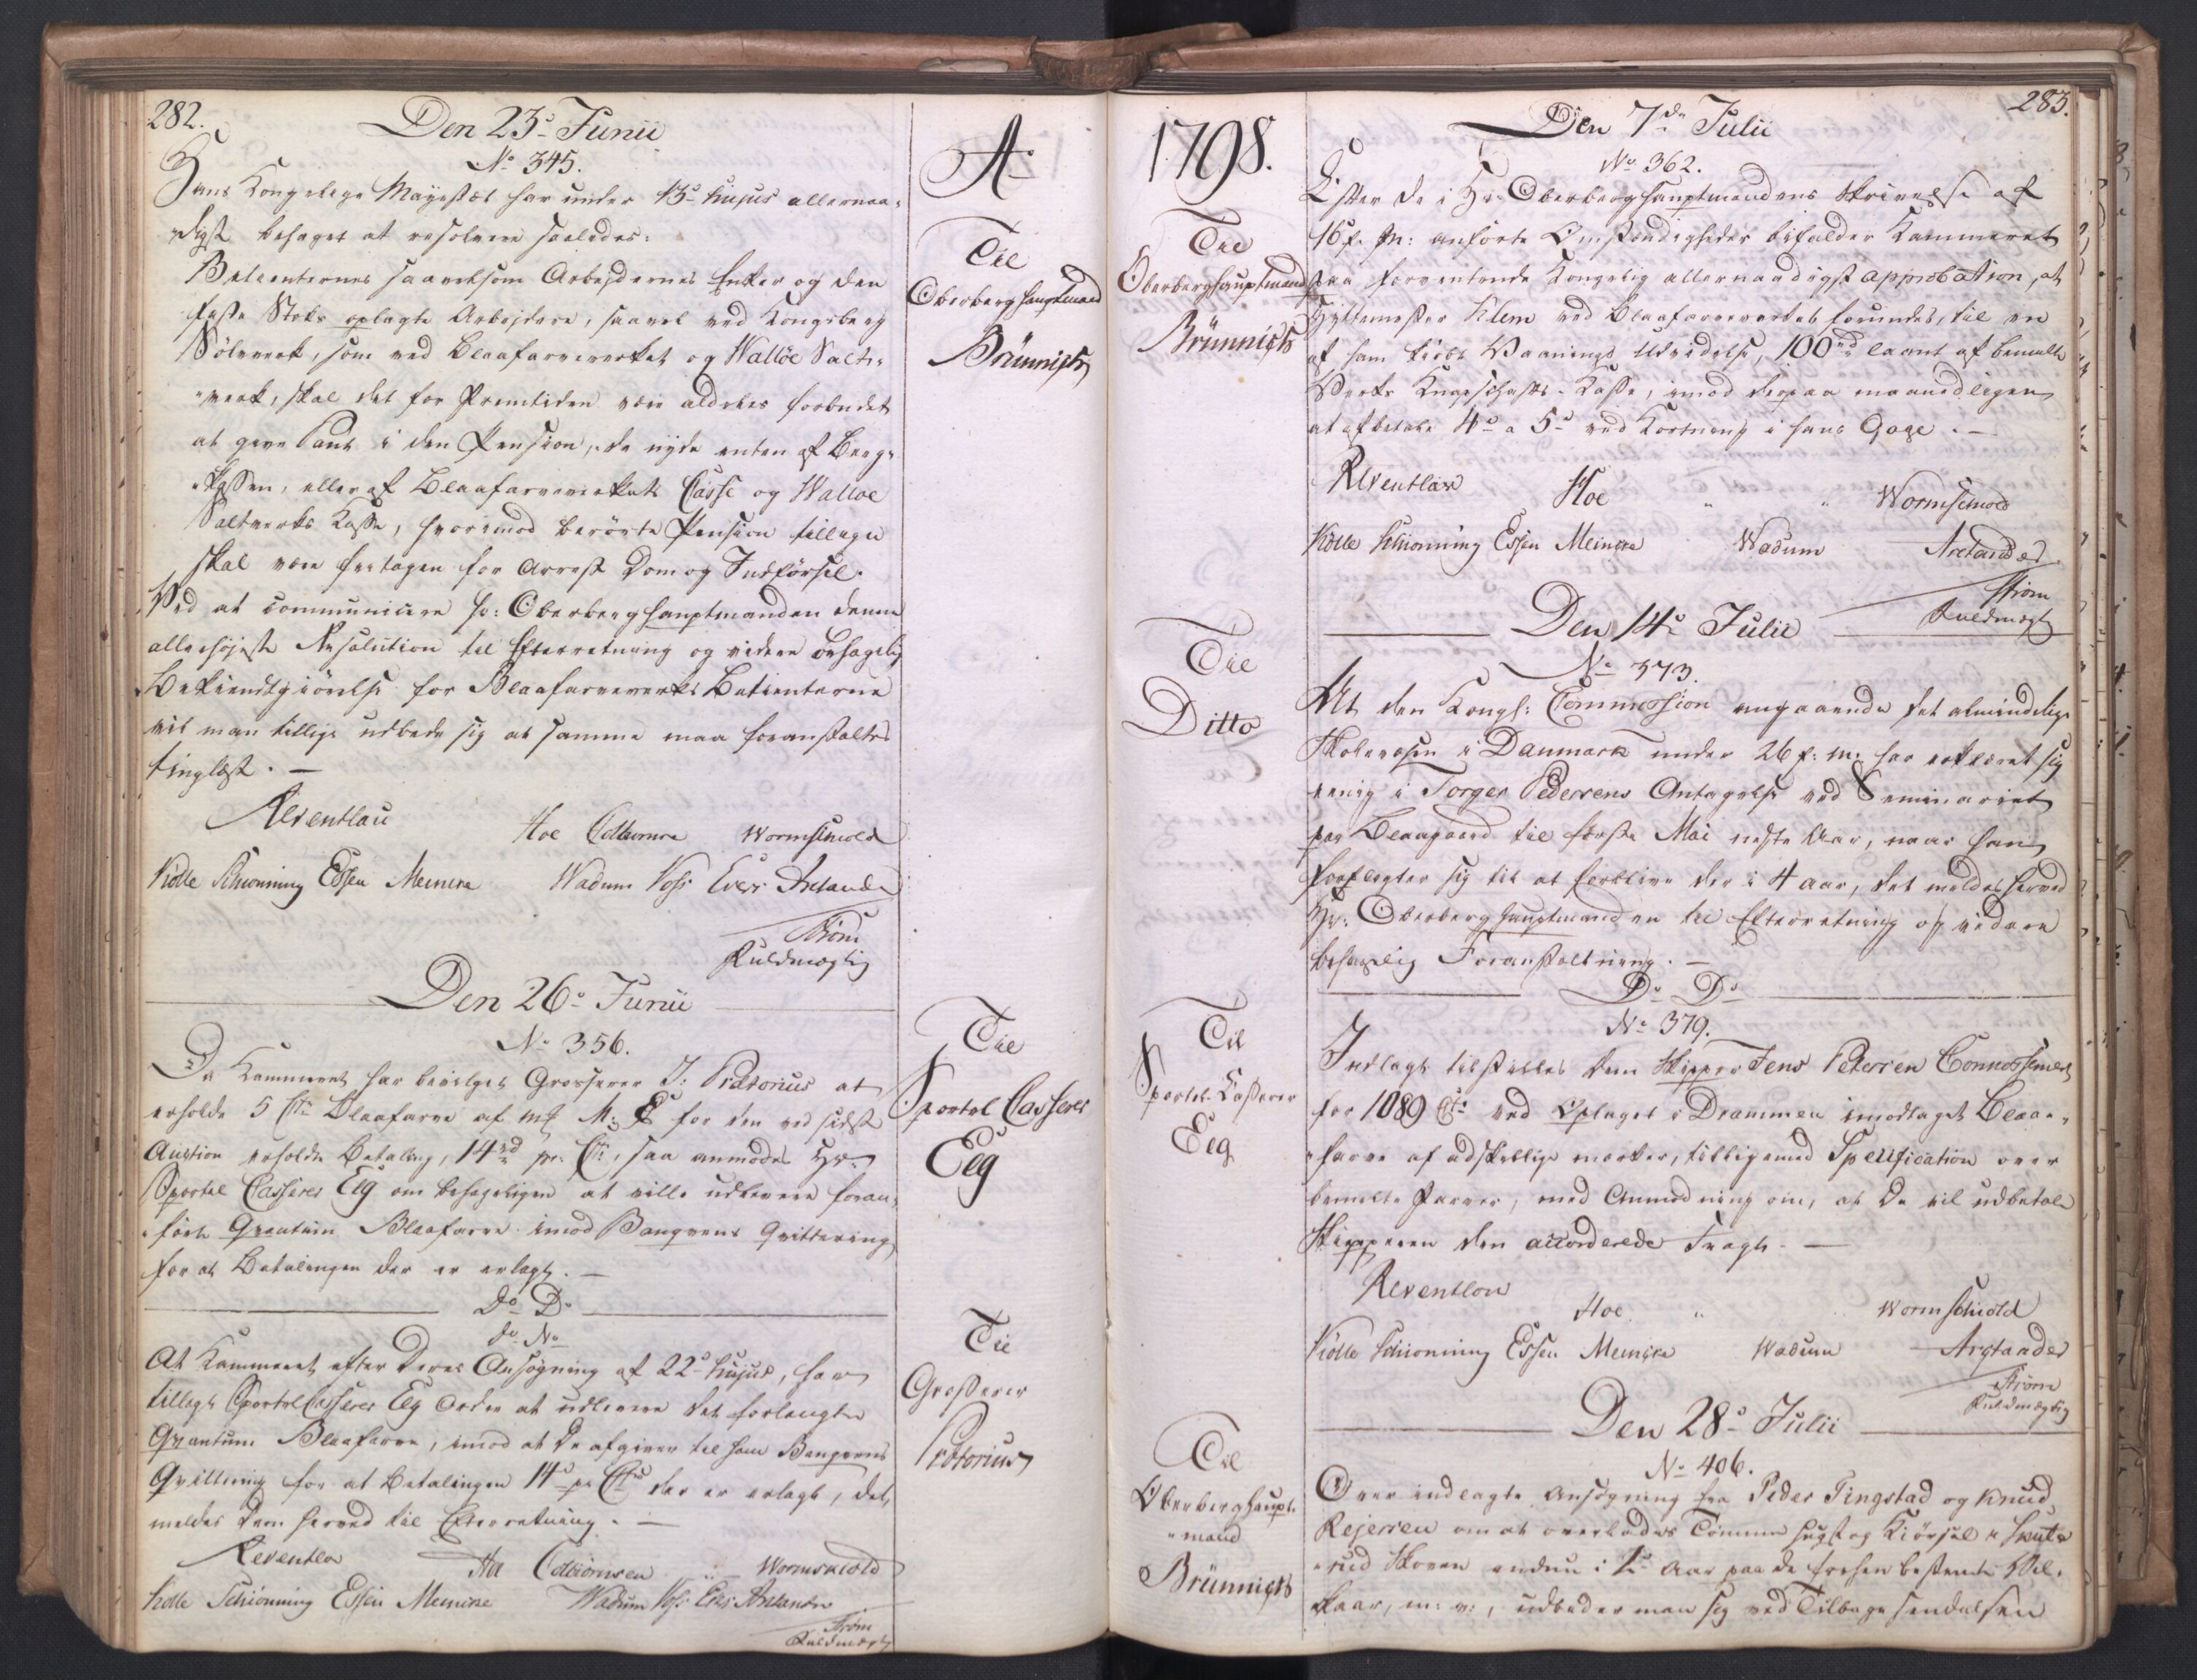 282.
Den 23de Junii
No 345.
Hans Kongelige Mayestæt har under 13de hujus allernaa-
digst behaget at resolvere saaledes:
Betienternes saavelsom Arbejdernes Enker og den
faste Stoks aplagte Arbejdere, saavel ved Kongsberg
Sölvverk, som ved Blaafarveverket og Walløe Salt-
verk, skal det for Fremtiden være aldeles forbudet
at give Pant i den Pension, de nyde enten af Berg-
Kassen, eller af Blaafarveverkets Casse og Walloe
Saltverks Kasse, hvorimod berörte Pension tillige
skal være fretagen for Arrest Dom og Indförsel.
Ved at communicere Hr: Oberberghauptmanden denne
allerhöjeste Resolution til Efterretning og videre behagelig
Bekiendtgiörelse for Blaafarveverks Betienterne
vil man tillige udbede sig at samme maa foranstaltes
tinglæst. —
Reventlau
Hoe Colbiornsen Wormskiold
Kiølle Schionning Essen Meincke Wadum Voss Evers Arctander
Strøm
Fuldmægtig
Den 26de Junii
No 356.
Da Kammeret har bevilget Grosserer J: Prætorius at
erholde 5 Ctr Blaafarve af mk M: C for den ved sidste
Auction erholdte Betaling, 14 rd pr. Ctr, saa anmodes Hr:
Sportel Casserer Eeg om behageligen at ville udlevere foran-
förte Qvantum Blaafarve imod Banqvens Qvittering
for at Betalingen der er erlagt. —
Do Do
do No
At Kammeret efter Deres Ansögning af 22de hujus, har
tillagt Sportel Casserer Eeg Ordre at udlevere det forlangte
Qvantum Blaafarve, imod at De afgiver til ham Banqvens
Qvittering for at Betalingen 14 rd pr Ctr der er erlagt, det
meldes Dem herved til Efterretning. —
Reventlou
Hoe Colbiornsen Wormskiold
Kiølle Schiönning Essen Meincke Wadum Voss Evers Arctander
Strøm
Fuldmægtig
Ao
Til
Oberberghauptmand
Brünnich
Til
Sportel Casserer
Eeg
Til
Grosserer
Prætorius
1798.
Til
Oberberghauptmand
Brünnich
Til
Ditto
Til
Sportel-Casserer
Eeg
Til
Oberberghaupt-
mand
Brünnich
283.
Den 7de Julii
No 362.
Efter de i Hr: Oberberghauptmandens Skrivelse af
16 f. M: anförte Omstændigheder bifalder Kammeret
paa forventende Kongelig allernaadigst approbation, at
Hyttemester Klem ved Blaafarveverket forundes, til en
af ham kiöbt Vaanings Udvidelse, 100 rd laant af bemelte
Verks Knapschafts-Kasse, imod derpaa maanedligen
at afbetale 4 rd a 5 rd ved Kortning i hans Gage. —
Reventlow
Hoe Wormskiold
Kiølle Schionning Essen Meincke Wadum Arctander
Strøm
Fuldmægt
Den 14de Julii
No 373.
At den Kongl: Commission angaaende det almindelige
Skolevæsen i Danmark under 26 f: m: har erklæret sig
enig i Torger Pedersens Antagelse ved Seminariet
paa Blaagaard til förste Mai næste Aar, naar han
forpligter sig til at forblive der i 4 Aar, det meldes herved
Hr: Oberberghauptmanden til Efterretning og videre
behagelig Foranstaltning. —
Do Do
No 379.
Indlagt tilstilles Dem Skipper Jens Petersen Connossement
for 1089 Ctr ved Oplaget i Drammen imodtaget Blaae-
farve af adskillige mærker, tilligemed Specification over
bemelte Farver, med Anmodning om, at De vil udbetale
Skipperen den accorderede Fragt. —
Reventlou
Hoe Wormskiold
Kiølle Schionning Essen Meincke Wadum Arctander
Strøm
Fuldmægtig
Den 28de Julii
No 406.
Over indlagte Ansögning fra Peder Tingstad og Knud
Rejersen om at overlades Tömmer hugst og Kiörsel i
Skoven endnu i Aar paa de forhen bestemte Vil-
kaar, m: v:, udbeder man sig ved Tilbage sendelsen